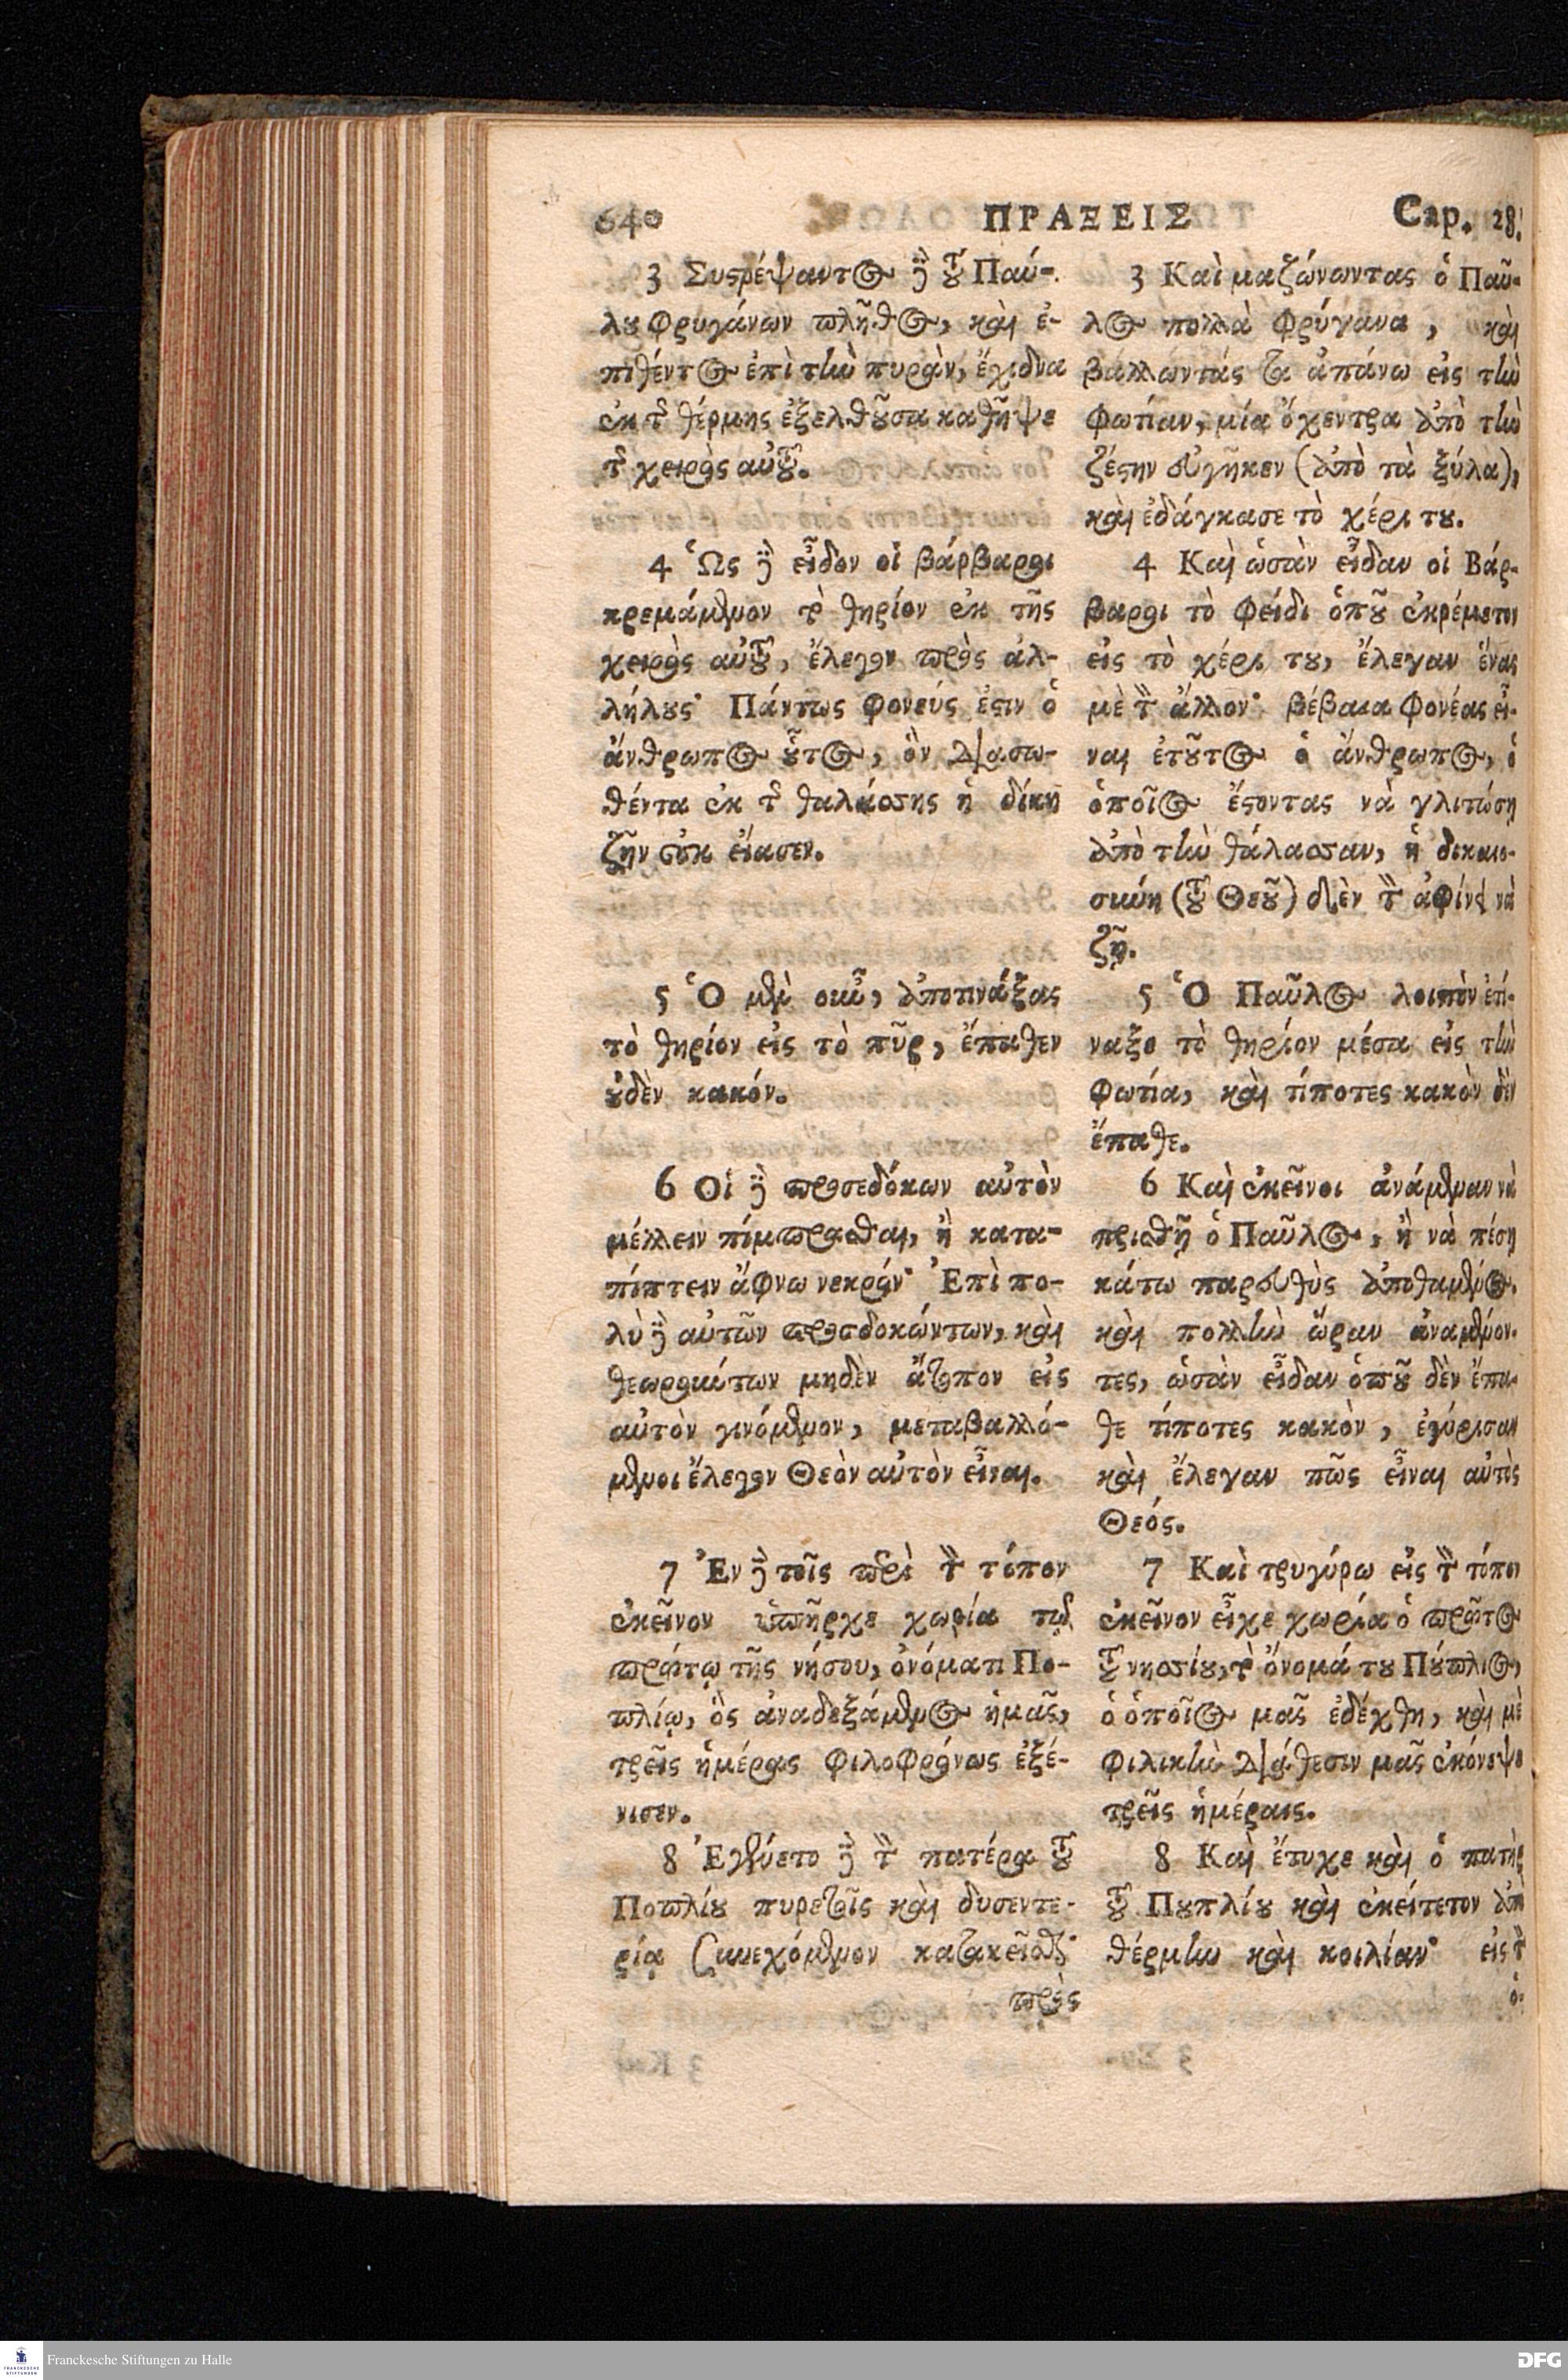 640 ΠΡΑΞΕΙΣ Cap. 28.
3 Συϛρέψαντος δὲ τοῦ Παύ-
λου φρυγάνων πλῆθος, καὶ ἐ-
πιθέντος ἐπὶ τὴν πυρὰν, ἔχιδνα
ἐκ τῆς θέρμης ἐξελθοῦσα καθῆψε
τῆς χειρὸς αὐτοῦ.
4 Ὡς δὲ εἶδον οἱ βάρβαροι
κρεμάμενον τὸ θηρίον ἐκ τῆς
χειρὸς αὐτοῦ, ἔλεγον πρὸς ἀλ-
λήλους· Πάντως φονεύς ἐϛιν ὁ
ἄνθρωπος οὗτος, ὃν διασω-
θέντα ἐκ τῆς θαλάσσης ἡ δίκη
ζῆν οὐκ εἴασεν.
5 Ὁ μὲν οὖν, ἀποτινάξας
τὸ θηρίον εἰς τὸ πῦρ, ἔπαθεν
οὐδὲν κακόν.
6 Οἱ δὲ προσεδόκων αὐτὸν
μέλλειν πίμπρασθαι, ἢ κατα-
πίπτειν ἄφνω νεκρόν· Ἐπὶ πο-
λὺ δὲ αὐτῶν προσδοκώντων, καὶ
θεωρούντων μηδὲν ἄτοπον εἰς
αὐτὸν γινόμενον, μεταβαλλό-
μενοι ἔλεγον Θεὸν αὐτὸν εἶναι.
7 Ἐν δὲ τοῖς περὶ τὸν τόπον
ἐκεῖνον ὑπῆρχε χωρία τῷ
πρώτῳ τῆς νήσου, ὀνόματι Πο-
πλίῳ, ὃς ἀναδεξάμενος ἡμᾶς,
τρεῖς ἡμέρας φιλοφρόνως ἐξέ-
νισεν.
8 Ἐγένετο δὲ τὸν πατέρα τοῦ
Ποπλίου πυρετοῖς καὶ δυσεντε-
ρίᾳ συνεχόμενον κατακεῖσθαι·
πρὸς
3 Καὶ μαζώνωντας ὁ Παῦ-
λος πολλὰ φρύγανα, καὶ
βαλλωντάς τα ἀπάνω εἰς τὴν
φωτίαν, μία ὄχεντρα ἀπὸ τὴν
ζέϛην εὐγῆκεν (ἀπὸ τὰ ξύλα),
καὶ ἐδάγκασε τὸ χέρι του.
4 Καὶ ὡσὰν εἶδαν οἱ Βάρ-
βαροι τὸ φείδι ὁποῦ ἐκρέμετον
εἰς τὸ χέρι του, ἔλεγαν ἕνας
μὲ τὸν ἄλλον· βέβαια φονέας εἶ-
ναι ἐτοῦτος ὁ ἄνθρωπος, ὁ
ὁποῖος ἔϛοντας νὰ γλιτώση
ἀπὸ τὴν θάλασσαν, ἡ δικαιο-
σύνη (τοῦ Θεοῦ) δὲν τὸν ἀφίνει νὰ
ζῇ.
5 Ὁ Παῦλος λοιπὸν ἐτί-
ναξε τὸ θηρίον μέσα εἰς τὴν
φωτία, καὶ τίποτες κακὸν δὲν
ἔπαθε.
6 Καὶ ἐκεῖνοι ἀνάμεναν νὰ
πρισθῆ ὁ Παῦλος, ἢ νὰ πέση
κάτω παρευθὺς ἀποθαμένος.
καὶ πολλὴν ὥραν ἀναμένον-
τες, ὡσὰν εἶδαν ὁποῦ δὲν ἔπα-
θε τίποτες κακὸν, ἐγύρισαν
καὶ ἔλεγαν πῶς εἶναι αὐτὸς
Θεός.
7 Καὶ τρυγύρω εἰς τὸν τόπον
ἐκεῖνον εἶχε χωρία ὁ πρῶτος
τοῦ νησίου, τὸ ὄνομά του Πούπλιος,
ὁ ὁποῖος μᾶς ἐδέχθη, καὶ μὲ
φιλικὴν διάθεσιν μᾶς ἐκόνεψε
τρεῖς ἡμέραις.
8 Καὶ ἔτυχε καὶ ὁ πατὴρ
τοῦ Πουπλίου καὶ ἐκείτετον ἀπὸ
θέρμην καὶ κοιλίαν· εἰς τὸν
ὁ-
Franckesche Stiftungen zu Halle
FRANCKESCHE STIFTUNGEN
DFG